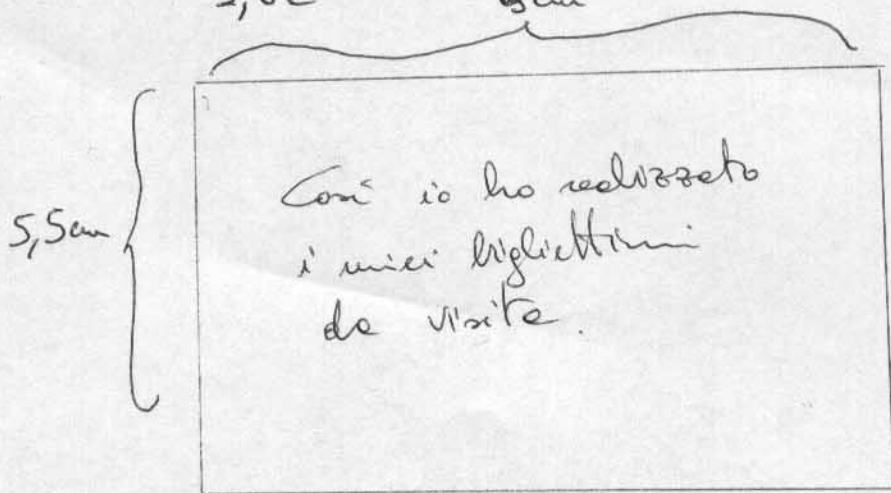 Così io ho realizzato
5,5cm
i miei bigliettini
da visita.